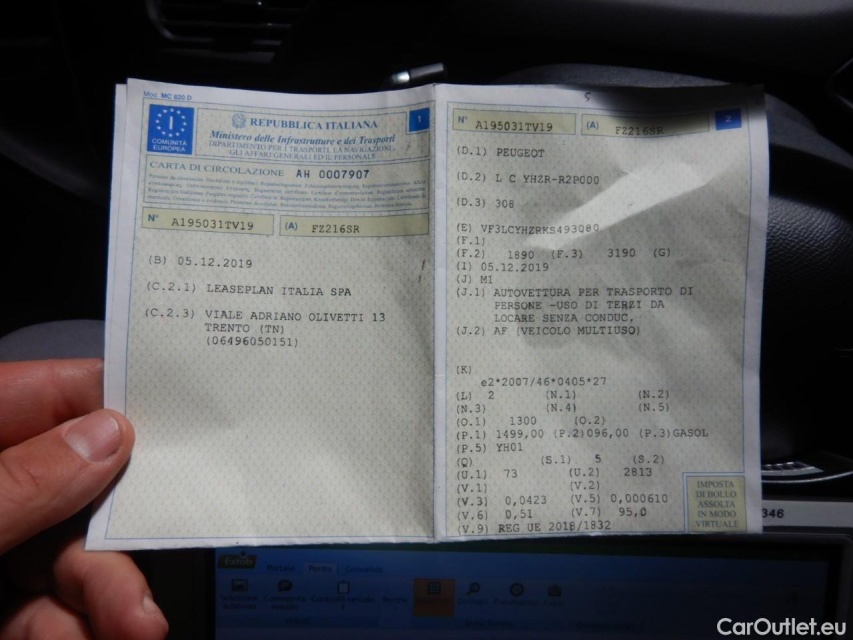 Mod. MC 820 D
COMUNITÀ
EUROPEA
REPUBBLICA ITALIANA
1
Ministero delle Infrastrutture e dei Trasporti
DIPARTIMENTO PER I TRASPORTI, LA NAVIGAZIONE,
GLI AFFARI GENERALI ED IL PERSONALE
CARTA DI CIRCOLAZIONE AH 0007907
N° A195031TV19 (A) FZ216SR
(B) 05.12.2019
(C.2.1) LEASEPLAN ITALIA SPA
(C.2.3) VIALE ADRIANO OLIVETTI 13
TRENTO (TN)
(06496050151)
N° A195031TV19 (A) FZ216SR 2
(D.1) PEUGEOT
(D.2) L C YHZR-R2P000
(D.3) 308
(E) VF3LCYHZRKS493080
(F.1)
(F.2) 1890 (F.3) 3190 (G)
(I) 05.12.2019
(J) M1
(J.1) AUTOVETTURA PER TRASPORTO DI
PERSONE -USO DI TERZI DA
LOCARE SENZA CONDUC.
(J.2) AF (VEICOLO MULTIUSO)
(K)
e2*2007/46*0405*27
(L) 2 (N.1) (N.2)
(N.3) (N.4) (N.5)
(O.1) 1300 (O.2)
(P.1) 1499,00 (P.2)096,00 (P.3)GASOL
(P.5) YH01
(Q) (S.1) 5 (S.2)
(U.1) 73 (U.2) 2813
(V.1) (V.2)
(V.3) 0,0423 (V.5) 0,000610
(V.6) 0,51 (V.7) 95,0
(V.9) REG UE 2018/1832
IMPOSTA
DI BOLLO
ASSOLTA
IN MODO
VIRTUALE
346
CarOutlet.eu